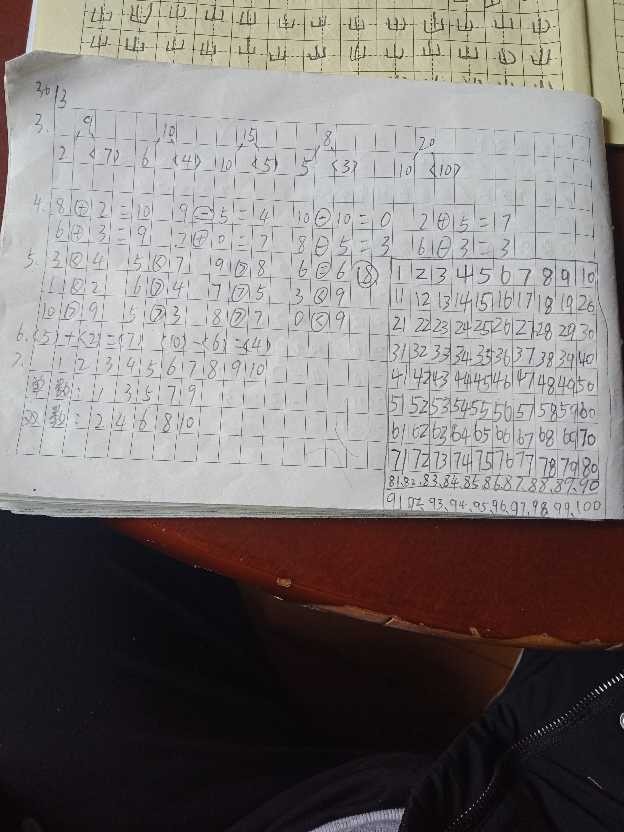 山 山 山 山 山 山 山 山 山 山 山 山
山 山 山 山 山 山 山 山 山 山 山 山 山
3.
9 10 15 8 20
2 (7) 6 (4) 10 (5) 5 (3) 10 (10)
4. 8 + 2 = 10 9 - 5 = 4 10 - 10 = 0 2 + 5 = 7
6 + 3 = 9 7 + 0 = 7 8 - 5 = 3 6 - 3 = 3
5. 3 < 4 5 < 7 9 > 8 6 = 6
1 < 2 6 > 4 7 > 5 3 < 9
10 > 9 5 > 3 8 > 7 0 < 9
6. (5) + (2) = (7) (10) - (6) = (4)
7. 1 2 3 4 5 6 7 8 9 10
单数: 1 3 5 7 9
双数: 2 4 6 8 10
18
1 2 3 4 5 6 7 8 9 10
11 12 13 14 15 16 17 18 19 20
21 22 23 24 25 26 27 28 29 30
31 32 33 34 35 36 37 38 39 40
41 42 43 44 45 46 47 48 49 50
51 52 53 54 55 56 57 58 59 60
61 62 63 64 65 66 67 68 69 70
71 72 73 74 75 76 77 78 79 80
81.82.83.84.85.86.87.88.89.90
91.92.93.94.95.96.97.98.99.100